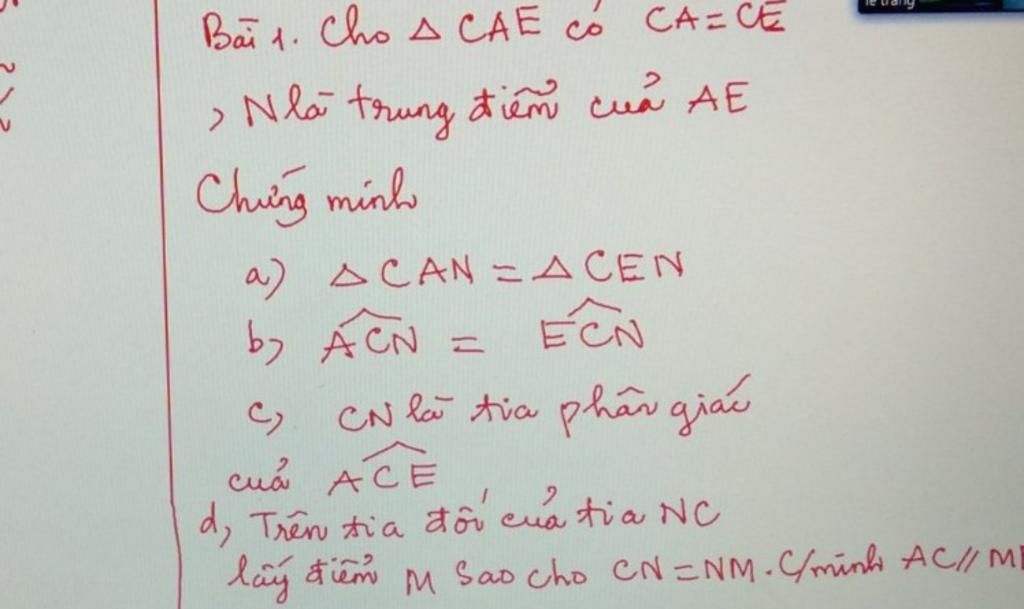 lê trang
Bài 1. Cho △ CAE có CA = CE
, N là trung điểm của AE
Chứng minh
a) △ CAN = △ CEN
b) ACN = ECN
c, CN là tia phân giác
của ACE
d, Trên tia đối của tia NC
lấy điểm M sao cho CN = NM. C/minh AC // M